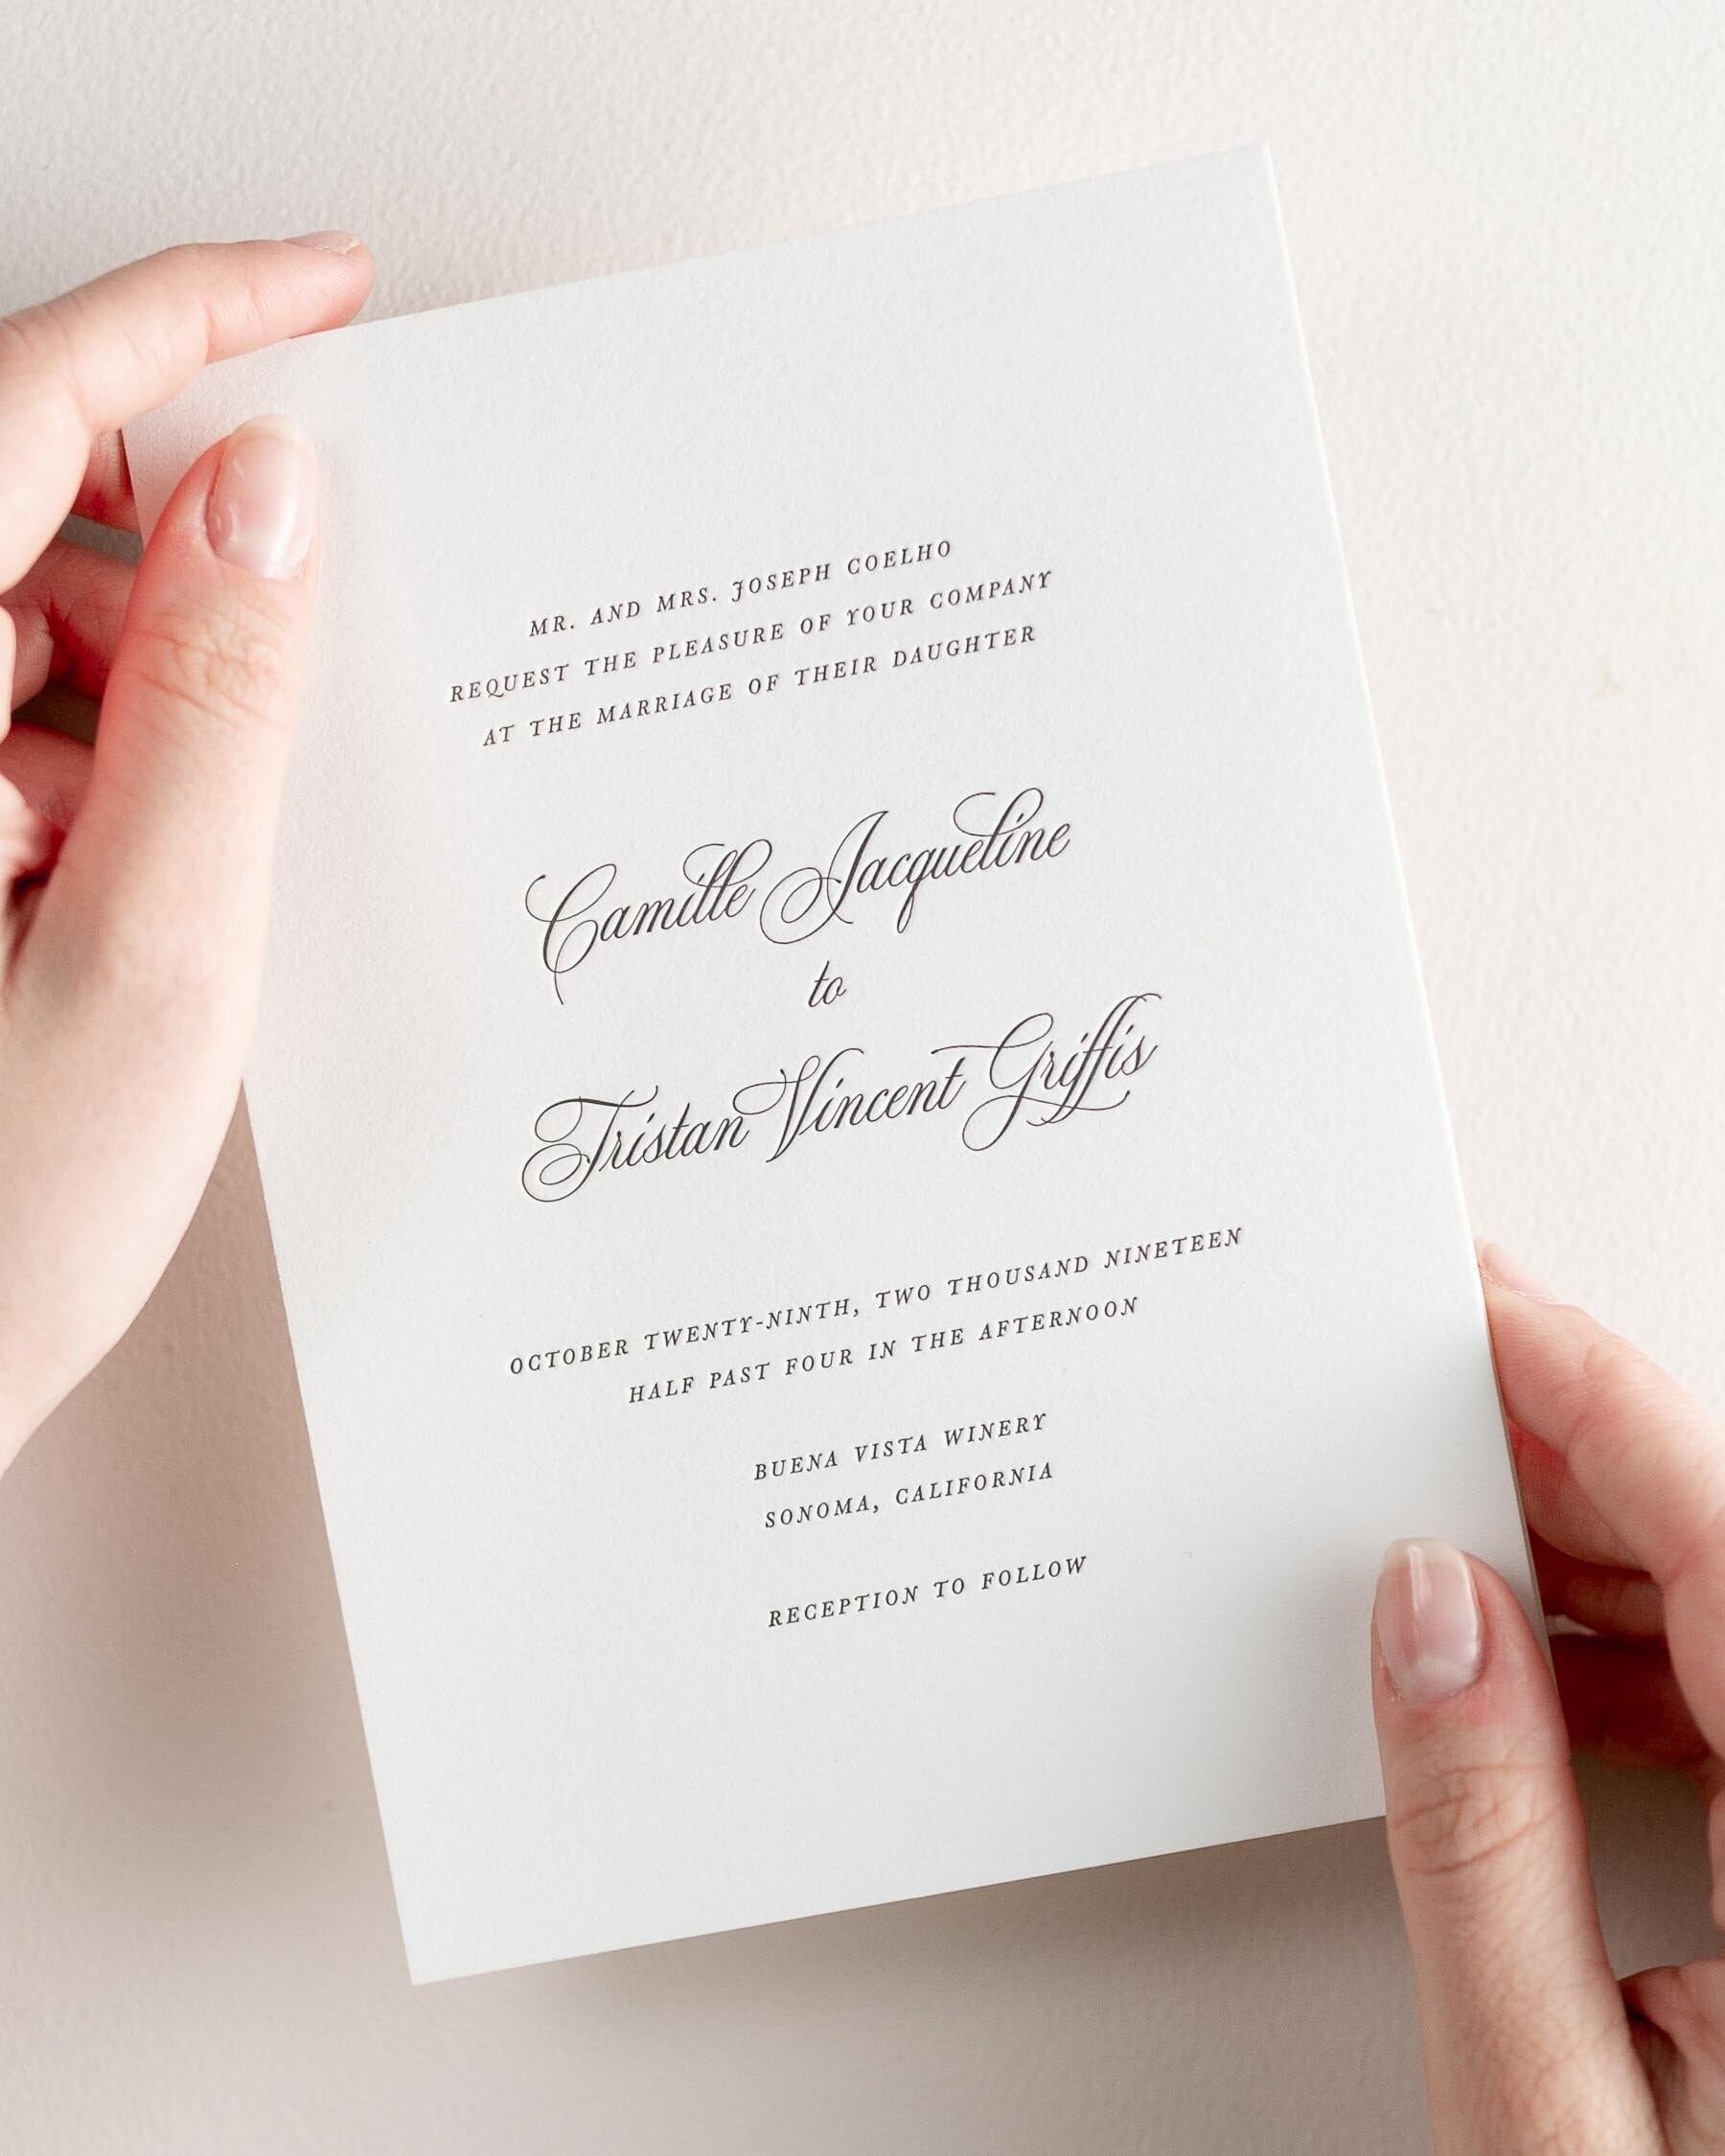 MR. AND MRS. JOSEPH COELHO
REQUEST THE PLEASURE OF YOUR COMPANY
AT THE MARRIAGE OF THEIR DAUGHTER
Camille Jacqueline
to
Tristan Vincent Griffis
OCTOBER TWENTY-NINTH, TWO THOUSAND NINETEEN
HALF PAST FOUR IN THE AFTERNOON
BUENA VISTA WINERY
SONOMA, CALIFORNIA
RECEPTION TO FOLLOW